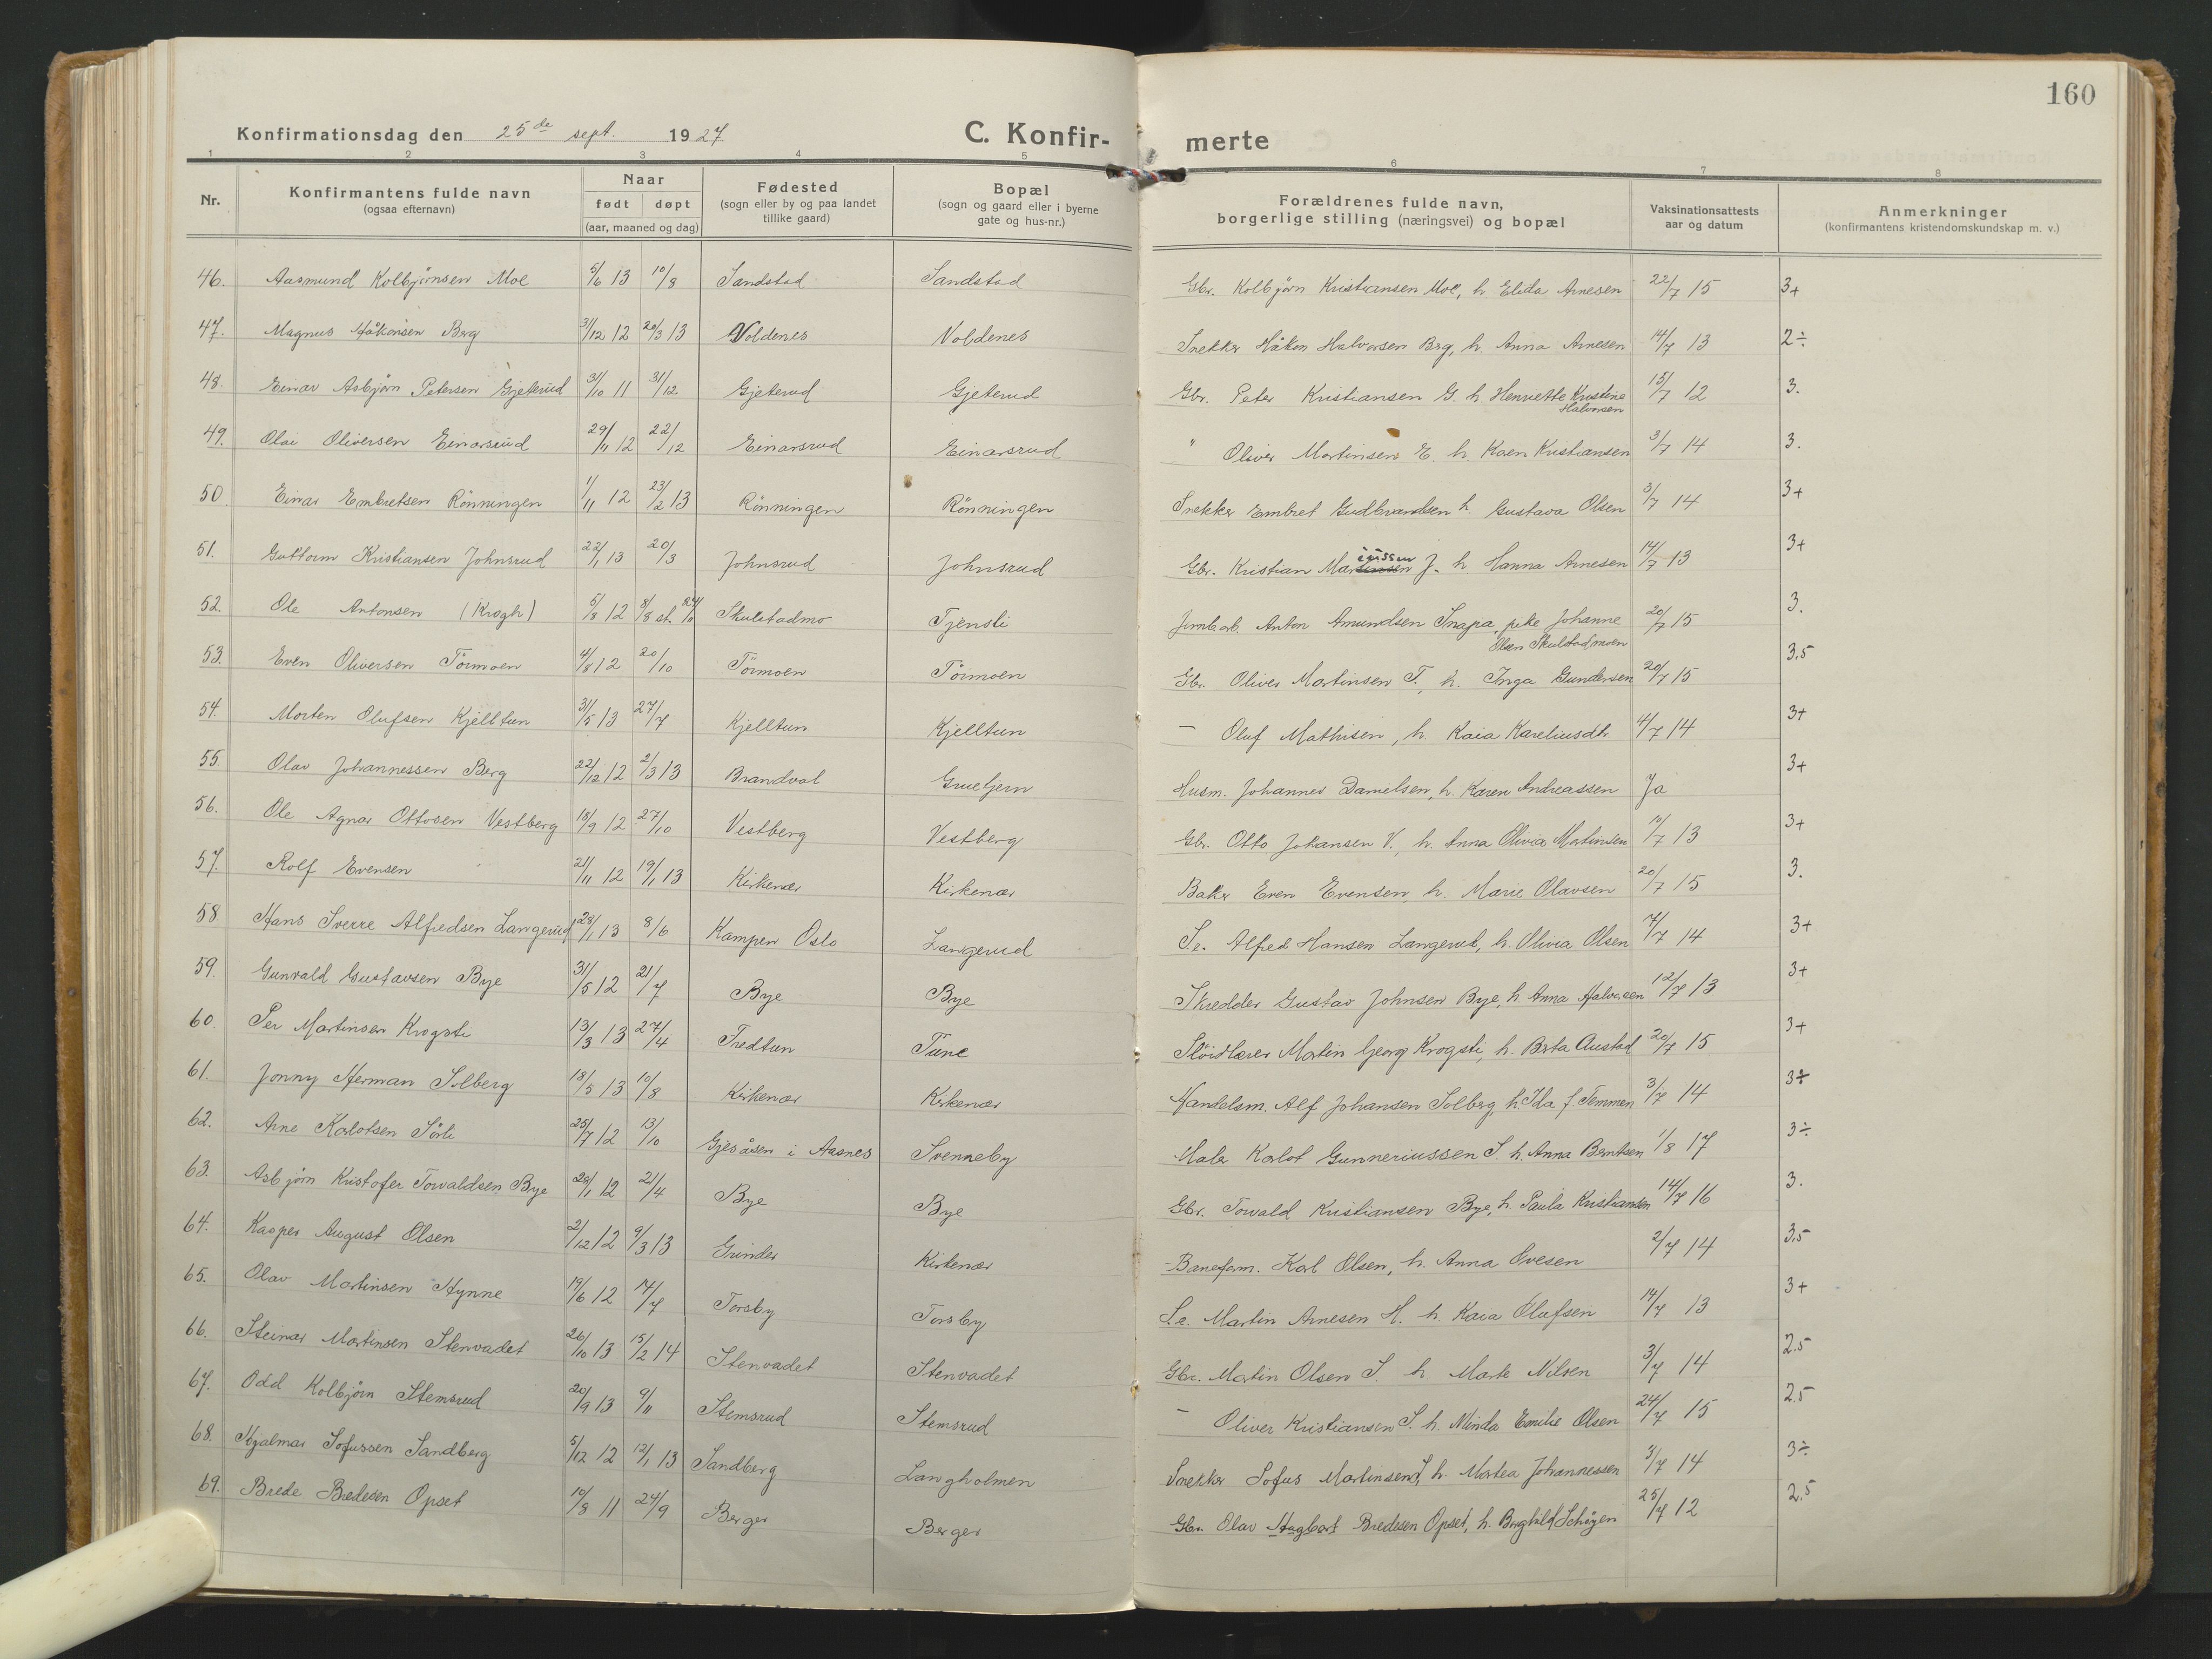 160
Konfirmationsdag den 25de sept. 1927 C. Konfir- merte
1 2 3 4 5 6 7 8
Nr. Konfirmantens fulde navn (ogsaa efternavn) Naar født døpt (aar, maaned og dag) Fødested (sogn eller by og paa landet tillike gaard) Bopæl (sogn og gaard eller i byerne gate og hus-nr.) Forældrenes fulde navn, borgerlige stilling (næringsvei) og bopæl Vaksinationsattests aar og datum Anmerkninger (konfirmantens kristendomskundskap m. v.)
46. Aasmund Kolbjørnsen Moe 5/6 13 10/8 Sandstad Sandstad Gbr. Kolbjørn Kristiansen Moe, h. Elida Arnesen 22/7 15 3+
47. Magnus Håkonsen Berg 31/12 12 20/3 13 Noldenes Noldenes Snekker Håkon Halvorsen Berg, h. Anna Arnesen 14/7 13 2÷
48. Einar Asbjørn Petersen Gjeterud 31/10 11 31/12 Gjeterud Gjeterud Gbr. Peter Kristiansen G. h. Henriette Kristine Halvorsen 15/7 12 3.
49. Olai Oliversen Einarsrud 29/11 12 22/12 Einarsrud Einarsrud " Oliver Martinsen E. h. Karen Kristiansen 3/7 14 3.
50. Einar Embretsen Rönningen 1/11 12 23/2 13 Rönningen Rönningen Snekker Embret Gudbrandsen h. Gustava Olsen 3/7 14 3+
51. Guttorm Kristiansen Johnsrud 22/1 13 20/3 Johnsrud Johnsrud Gbr. Kristian Mariussen J. h. Hanna Arnesen 14/7 13 3+
52. Ole Antonsen (Krogh) 5/8 12 8/8 st. Skulstadmo Tjensli Jernb.arb. Anton Amundsen Snapa, pike Johanne Olsen Skulstadmoen 20/7 15 3.
53. Even Oliversen Törmoen 4/8 12 20/10 Törmoen Törmoen Gbr. Oliver Martinsen T., h. Inga Gundersen 20/7 15 3,5
54. Morten Olufsen Kjelltun 31/5 13 27/7 Kjelltun Kjelltun — Oluf Mathisen, h. Kaia Kareliusdtr 4/7 14 3+
55. Olav Johannessen Berg 22/12 12 2/3 13 Brandval Gruetjern Husm. Johannes Danielsen, h. Karen Andreassen Ja 3+
56. Ole Agnar Ottosen Vestberg 18/9 12 27/10 Vestberg Vestberg Gbr. Otto Johansen V., h. Anna Olivia Martinsen 10/7 13 3+
57. Rolf Evensen 21/11 12 19/1 13 Kirkenær Kirkenær Baker Even Evensen, h. Marie Olavsen 20/7 15 3.
58. Hans Sverre Alfredsen Langerud 28/1 13 8/6 Kampen Oslo Langerud Se. Alfred Hansen Langerud, h. Olivia Olsen 7/7 14 3+
59. Gunvald Gustavsen Bye 31/5 12 21/7 Bye Bye Skredder Gustav Johnsen Bye, h. Anna Halvorsen 12/7 13 3+
60. Per Martinsen Krogsti 13/3 13 27/4 Fredtun Tune Slöidlærer Martin Georg Krogsti, h. Berta Austad 20/7 15 3+
61. Jonny Herman Solberg 18/5 13 10/8 Kirkenær Kirkenær Handelsm. Alf Johansen Solberg, h. Ida f. Temmen 3/7 14 3÷
62. Arne Karlotsen Sörli 25/7 12 13/10 Gjesåsen i Aasnes Svenneby Maler Karlot Gunneriussen S. h. Anna Berntsen 1/8 17 3÷
63. Asbjörn Kristofer Torvaldsen Bye 28/1 12 21/4 Bye Bye Gbr. Torvald Kristiansen Bye, h. Paula Kristiansen 14/7 16 3.
64. Kasper August Olsen 2/12 12 9/3 13 Grinder Kirkenær Baneform. Karl Olsen, h. Anna Ovesen 2/7 14 3,5
65. Olav Martinsen Hynne 19/6 12 14/7 Torsby Torsby Se. Martin Arnesen H. h. Kaia Olufsen 14/7 13 3+
66. Steinar Martinsen Stenvadet 26/10 13 15/2 14 Stenvadet Stenvadet Gbr. Martin Olsen S. h. Marte Nilsen 3/7 14 2.5
67. Odd Kolbjörn Stemsrud 20/9 13 9/11 Stemsrud Stemsrud — Oliver Kristiansen S. h. Minda Emilie Olsen 24/7 15 2.5
68. Hjalmar Sofussen Sandberg 5/12 12 12/1 13 Sandberg Langholmen Snekker Sofus Martinsen S, h. Martea Johannessen 3/7 14 3÷
69. Brede Bredesen Opset 10/8 11 24/9 Berger Berger Gbr. Olav Hagbart Bredesen Opset, h. Borghild Schøyen 25/7 12 2.5